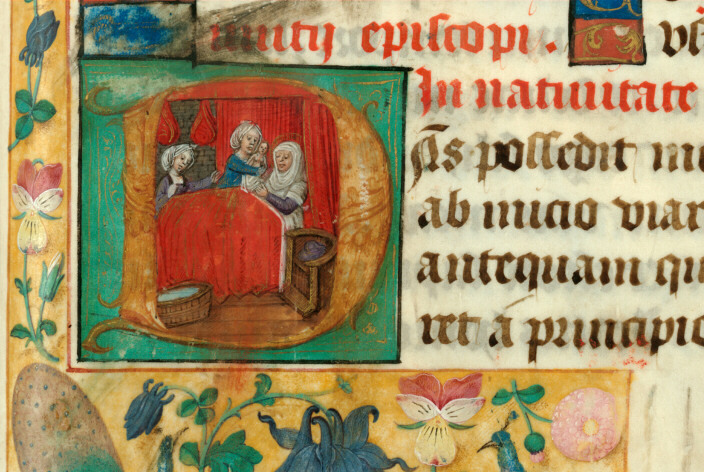 episcopi .
In natiuitate
n̄s possedit me
ab inicio viar
antequam qu
ret a principio